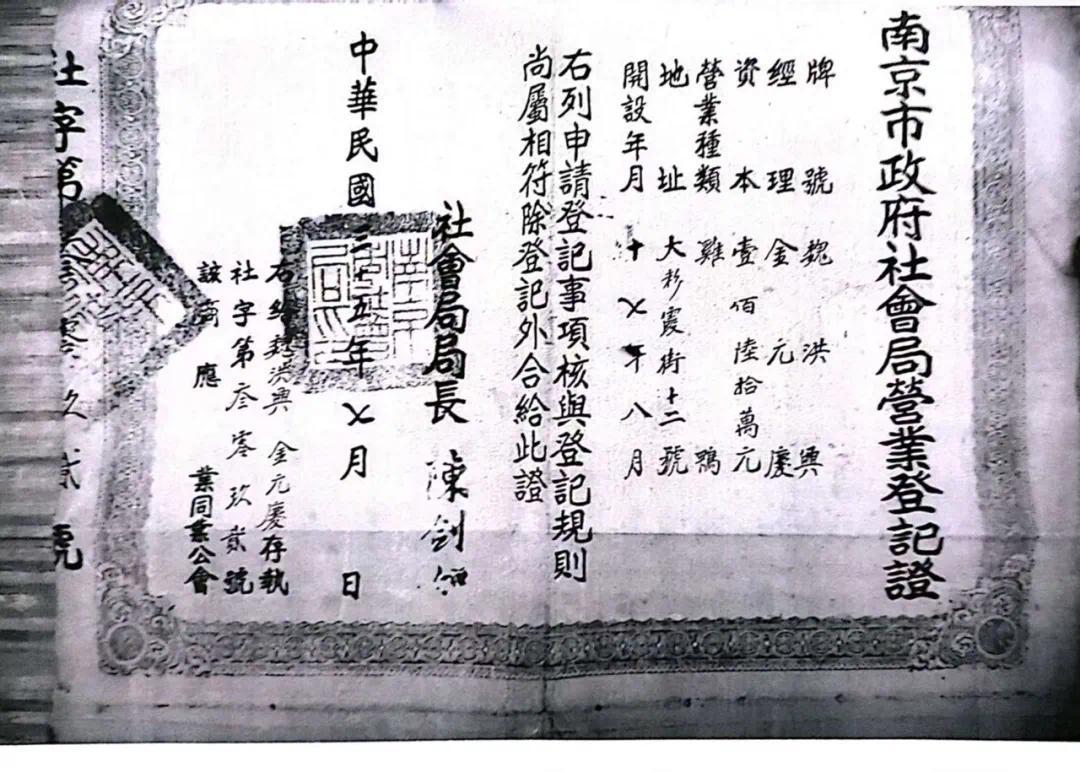 南京市政府社會局營業登記證
牌號 魏洪興
經理 金元慶
資本 壹佰陸拾萬元
營業種類 雞鴨
地址 大彩霞街十二號
開設年月 十七年八月
右列申請登記事項核與登記規則
尚屬相符除登記外合給此證
社會局局長 陳劍
中華民國三十五年七月 日
右給魏洪興 金元慶存執
社字第叁零玖貳號
該商應 業同業公會
社字第 零玖貳號